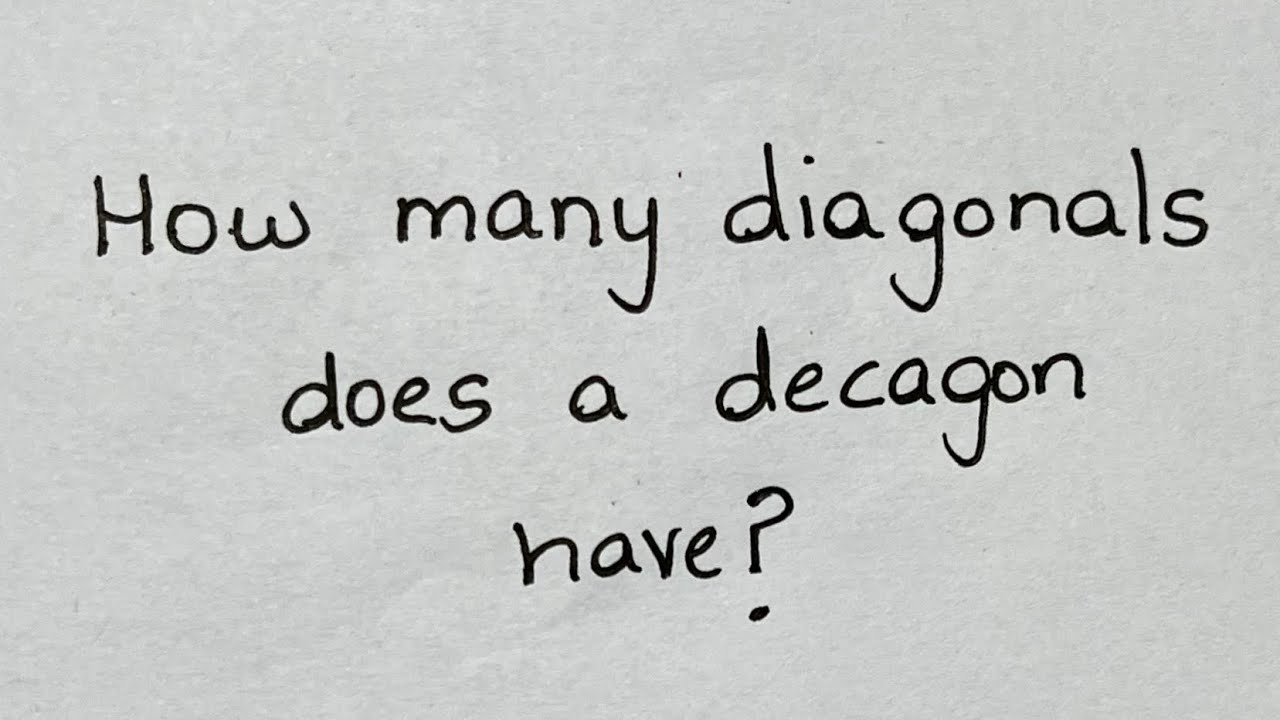 How many diagonals
does a decagon
have?